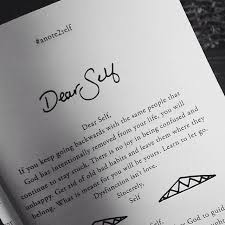 #anote2self
Dear Self
Dear Self,
If you keep going backwards with the same people that
God has intentionally removed from your life, you will
continue to stay stuck. There is no joy in being confused and
unhappy. Get rid of old bad habits and leave them where they
belong. What is meant for you will be yours. Learn to let go.
Dysfunction isn't love.
Sincerely,
Self
Self,
God to guide